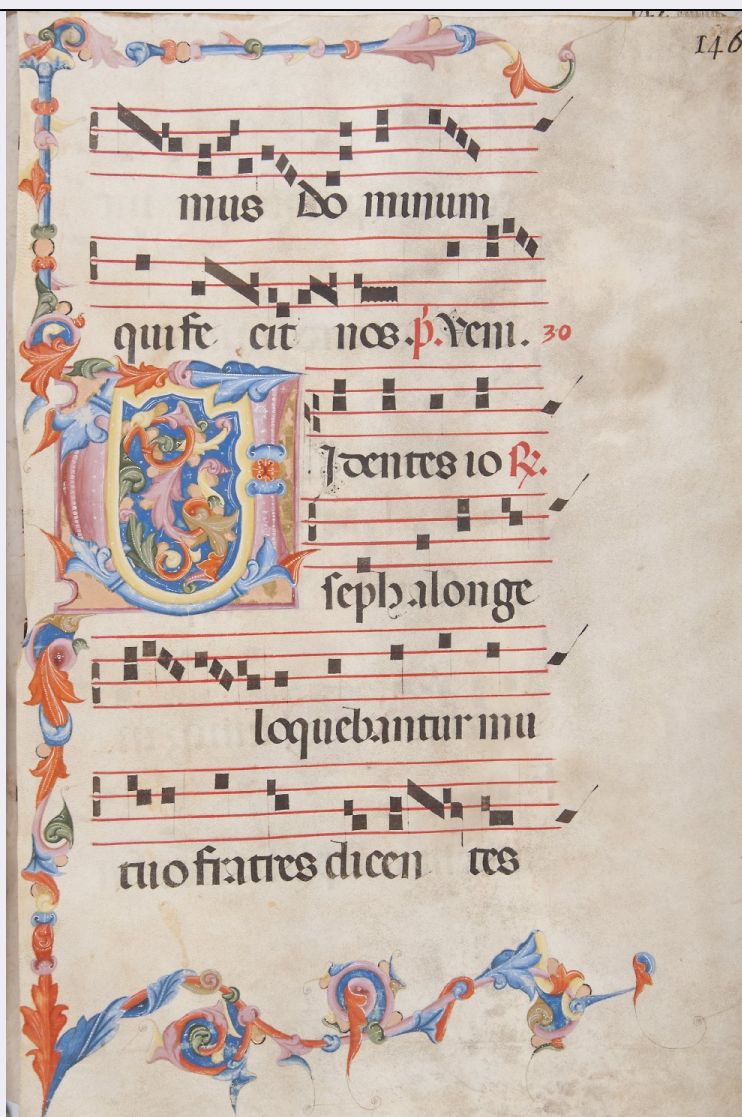 146
mus Do minum
qui fe cit nos. p̃. Veni. 30
VIdentes io R.
seph a longe
loquebantur mu
tuo fratres dicen tes